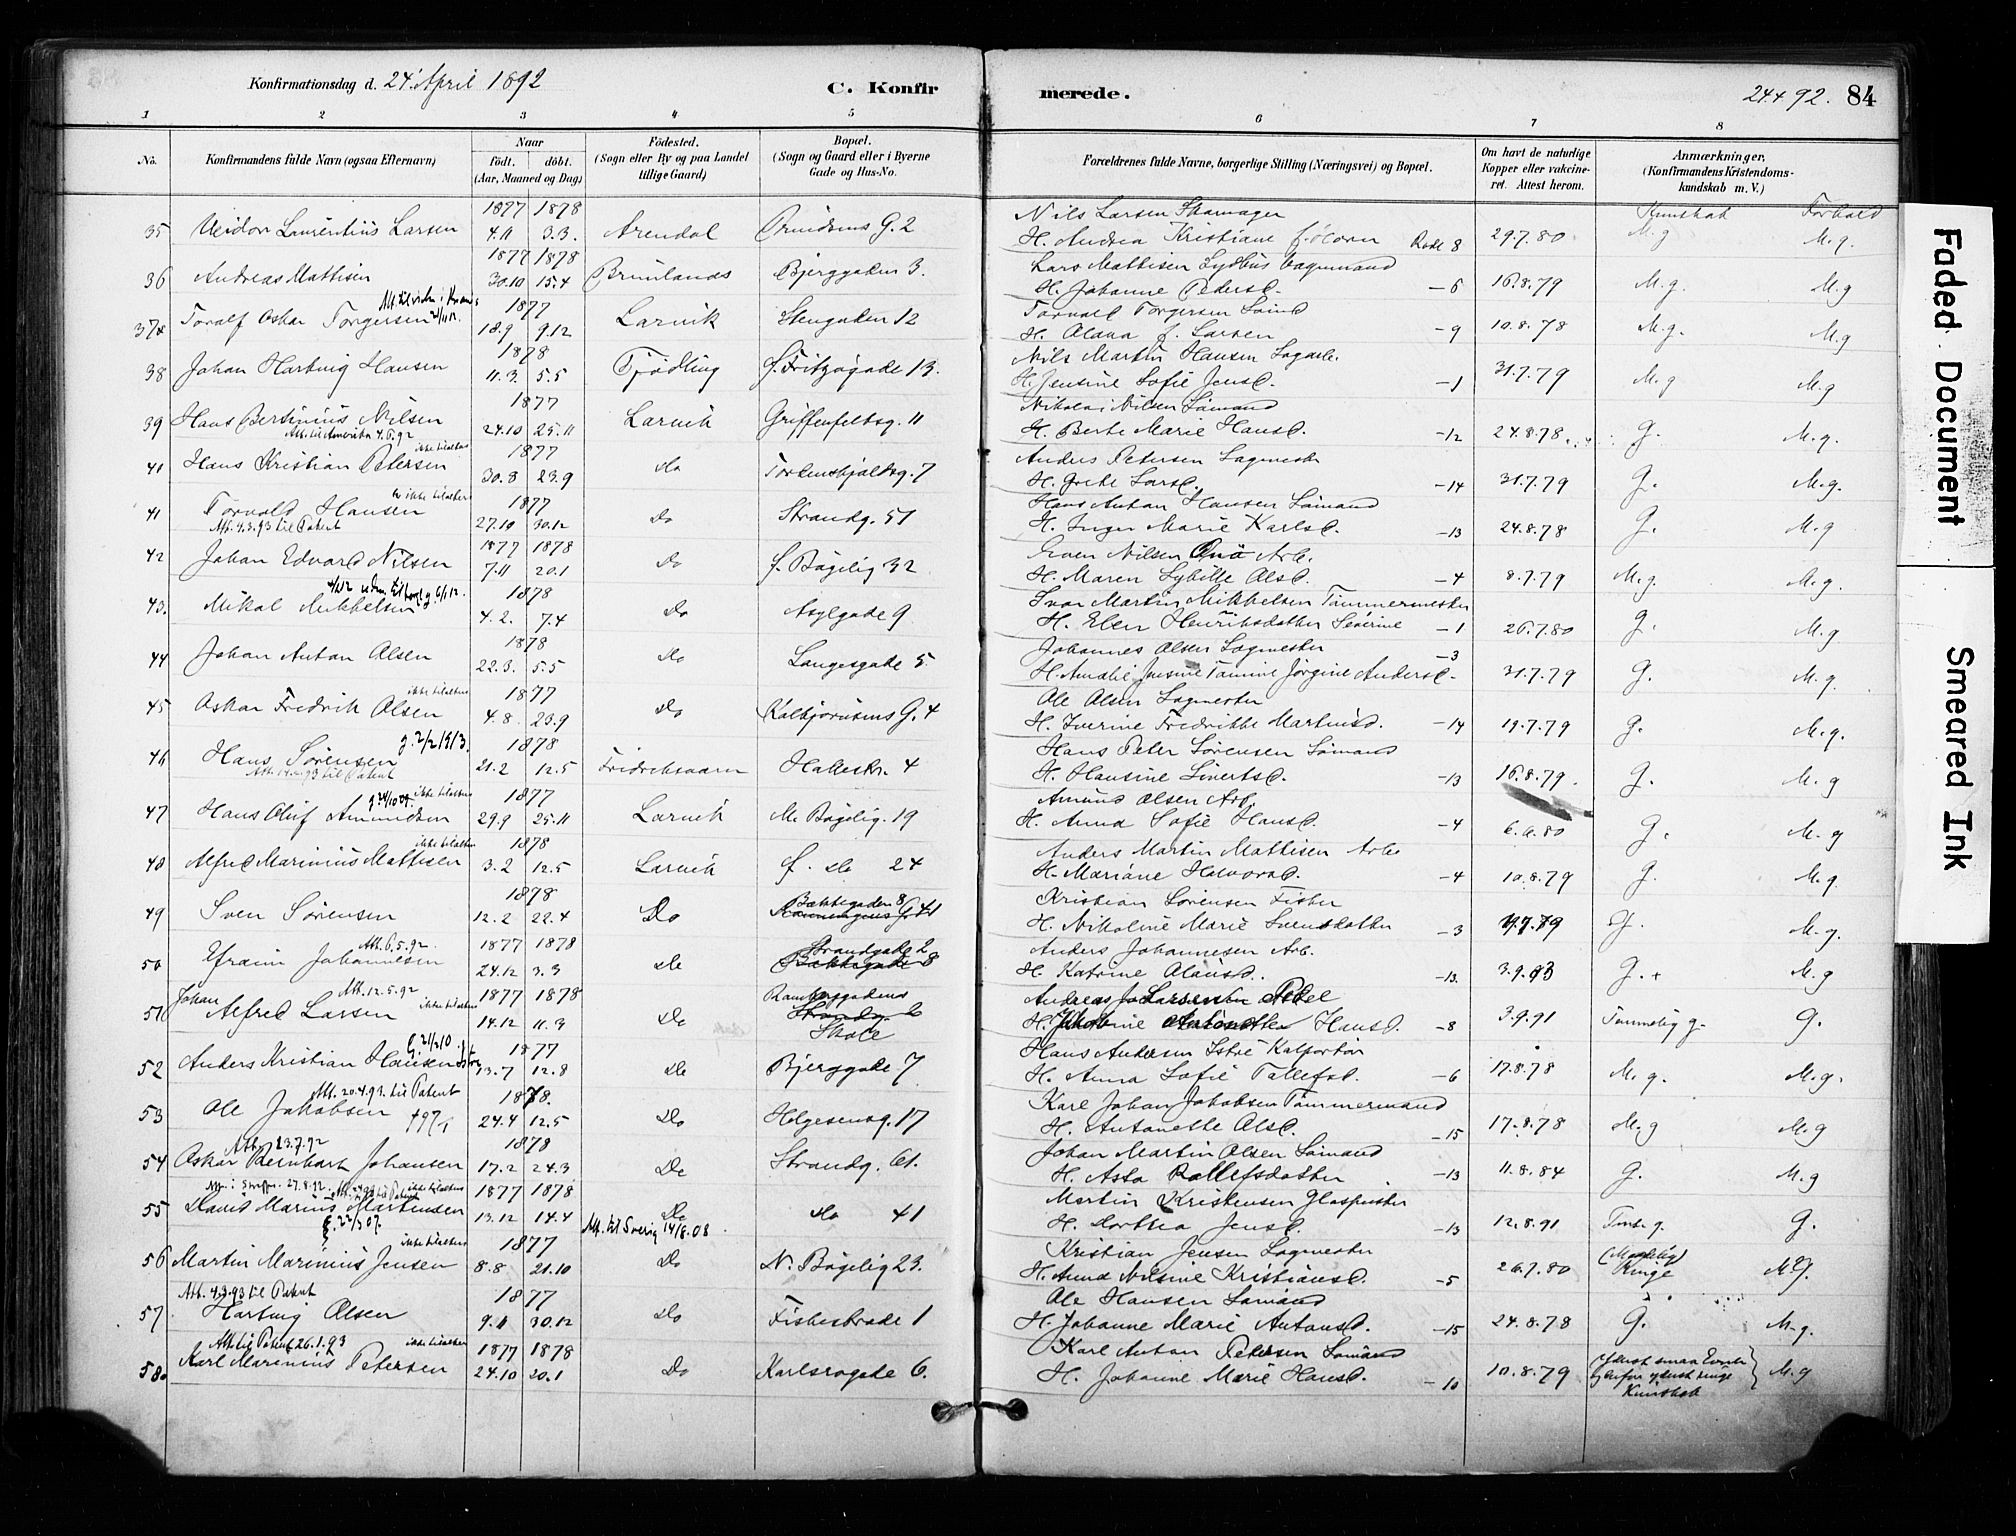 Konfirmationsdag d. 24' April 1892
C. Konfirmerede.
24.4 92. 84
1 2 3 4 5 6 7 8
No.
Konfirmandens fulde Navn (ogsaa Efternavn)
Naar
födt. döbt.
(Aar, Maaned og Dag)
Födested.
(Sogn eller By og paa Landet
tillige Gaard)
Bopæl.
(Sogn og Gaard eller i Byerne
Gade og Hus-No.
Forældrenes fulde Navne, borgerlige Stilling (Næringsvei) og Bopæl.
Om havt de naturlige
Kopper eller vakcine-
ret. Attest herom.
Anmærkninger.
(Konfirmandens Kristendoms-
kundskab m. V.)
Kunskab Forhold
1877 1878 Nils Larsen Skomager
35 Laurentius Larsen 4.11 3.3. Arendal G. 2 H. Andrea Kristiane Rode 8 29.7.80 M.g M.g.
1877 1878 Lars Mattisen
36 Andreas Mattisen 30.10 15.4 Brunlanæs Bjerggaden 3. H. Johanne Pedersd. – 6 16.8.79 M.g. M.g
1877 Torvald Torgersen Sömd
37 Toralf Oskar Torgersen 18.9 9.12 Larvik Stengaden 12 H. Olava f. Larsen – 9 10.8.78 M.g. M.g
1878 Nils Martin Hansen Sagarb.
38 Johan Hartvig Hansen 11.3. 5.5 Tjödling f. Fritzögade 13. H. Jensine Sofie Jensd. – 1 31.7.79 M.g M.g
1877 Nikolai Nilsen Sömand
39 Hans Bertinius Nilsen 24.10 25.11 Larvik Griffenfeldtsg. 11 H. Berte Marie Hansd. – 12 24.8.78 G. M.g.
Att. til Amerika 4.6.92
ikke tilalters 1877 Anders Petersen Sagmester
41 Hans Kristian Petersen 30.8 23.9 do Tordenskjoldsg. 7 H. Grete Larsd. – 14 31.7.79 G. M.g.
ikke tilalters 1877 Hans Anton Hansen Sömand
41 Torvald Hansen 27.10 30.12 Do Strandg. 51 H. Inger Marie Karlsd. – 13 24.8.78 G. M.g
Att. 4.3.93 til Patent
1877 1878 Even Nilsen Arb.
42 Johan Edvard Nilsen 7.11 20.1 Do f. Bögelig 32 H. Maren Sybille Olsd. – 4 8.7.79 M.g. M.g.
1878 Martin Mikkelsen Tömmermester
43. Mikal Mikkelsen 4.2. 7.4 Do Asylgade 9 H. Elen Henriksdatter Severine – 1 26.7.80 G. M.g
1878 Johannes Olsen Sagmester – 3
44 Johan Anton Olsen 22.3. 5.5 Do Langesgade 5. H. Amalie Jörgine Andersd. 31.7.79 G. M.g.
ikke tilalters 1877 Ole Olsen Sagmester
45 Oskar Fredrik Olsen 4.8. 23.9 Do G. 4 H. Iverine Fredrikke Martinsd. – 14 19.7.79 G. M.g.
g. 2/2 1913. 1878 Hans Peter Sörensen Sömand
46 Hans Sörensen 21.2 12.5 Fredriksværn 4 H. Hansine Sivertsd. – 13 16.8.79. G. M.g
til Patent
ikke tilalters 1877 Amund Olsen Arb.
47 Hans Oluf Amundsen 29.9 25.11 Larvik M. Bögelig. 19 H. Anna Sofie Hansd. – 4 G. M.g
ikke tilalters 1878 Anders Martin Mattisen Arb.
48 Alfred Marinius Mattisen 3.2 12.5 Larvik f. do 24 H. Mariane Halvorsd. – 4 10.8.79 G. M.g.
1878 Bækkegaden 8 Kristian Sörensen Fisker
49 Sven Sörensen 12.2 22.4 Do G. 41 H. Nikoline Marie Svensdatter – 3 G. M.g.
Att. 6.5.92. 1877 1878 Strandgade 2 Anders Johannesen Arb.
50 Efraim Johannesen 24.12 3.3 do Bækkegade 8 H. Katrine Olausd. – 13. 3.9.93 G. + M.g
Johan Att. 12.5.92 ikke tilalters 1877 1878 Rambergsgadens Andreas
51 Alfred Larsen 14.12 11.3 Do Strandg. 6 H. Hansd. – 8 3.9.91 Temmelig g. G.
Skole
1877 Hans Andersen Kolportör
52 Anders Kristian Hansen 13.7 12.8 Do Bjerggade 7 H. Anna Sofie Tollefsd. – 6 17.8.78 M.g. M.g.
Att. 20.4.93. til Patent 1878. Karl Johan Jakobsen Tömmermand
53 Ole Jakobsen 24.4 12.5 Do Helgesensg. 17 H. Antonette Olsd. – 15 17.8.78 M.g M.g
Att. 23.7.92 1878 Johan Martin Olsen Sömand
54 Oskar Reinhart Johansen 17.2 24.3 Do Strandg. 61. H. Asta Rollefsdatter – 13 11.8.84 G. M.g
27.8.92. til Patent ikke tilalters 1877 1878 Martin Kristensen Glasspuster
55 David Marius Martensen 13.12 14.4 Do do 41 H. Dortea Jensd. – 13 12.8.91 G.
g. 22/3 07. Att. til Sverig 14/8.08
ikke tilalters 1877 Kristian Jensen Sagmester (Maadelig)
56 Martin Marinius Jensen 8.8 21.10 Do N. Bögelig 23. H. Anna Nilsine Kristiansd. – 5 26.7.80 Ringe M.g.
Att. 4.3.93 til Patent 1877 Ole Hansen Sömand
57 Hartvig Olsen 9.11 30.12 Do Fiskestrade 1 H. Johanne Marie Antonsd. – 15 24.8.78 G. M.g.
Att. til Patent 26.1.93 ikke tilalters 1877 1878 Karl Anton Petersen Sömand yderst smaa Evner
58 Karl Marinius Petersen 24.10 20.1 Do Karlsrogade 6. H. Johanne Marie Hansd. – 10 10.8.79 yderst ringe M.g
Kunskab
Faded Document
Smeared Ink